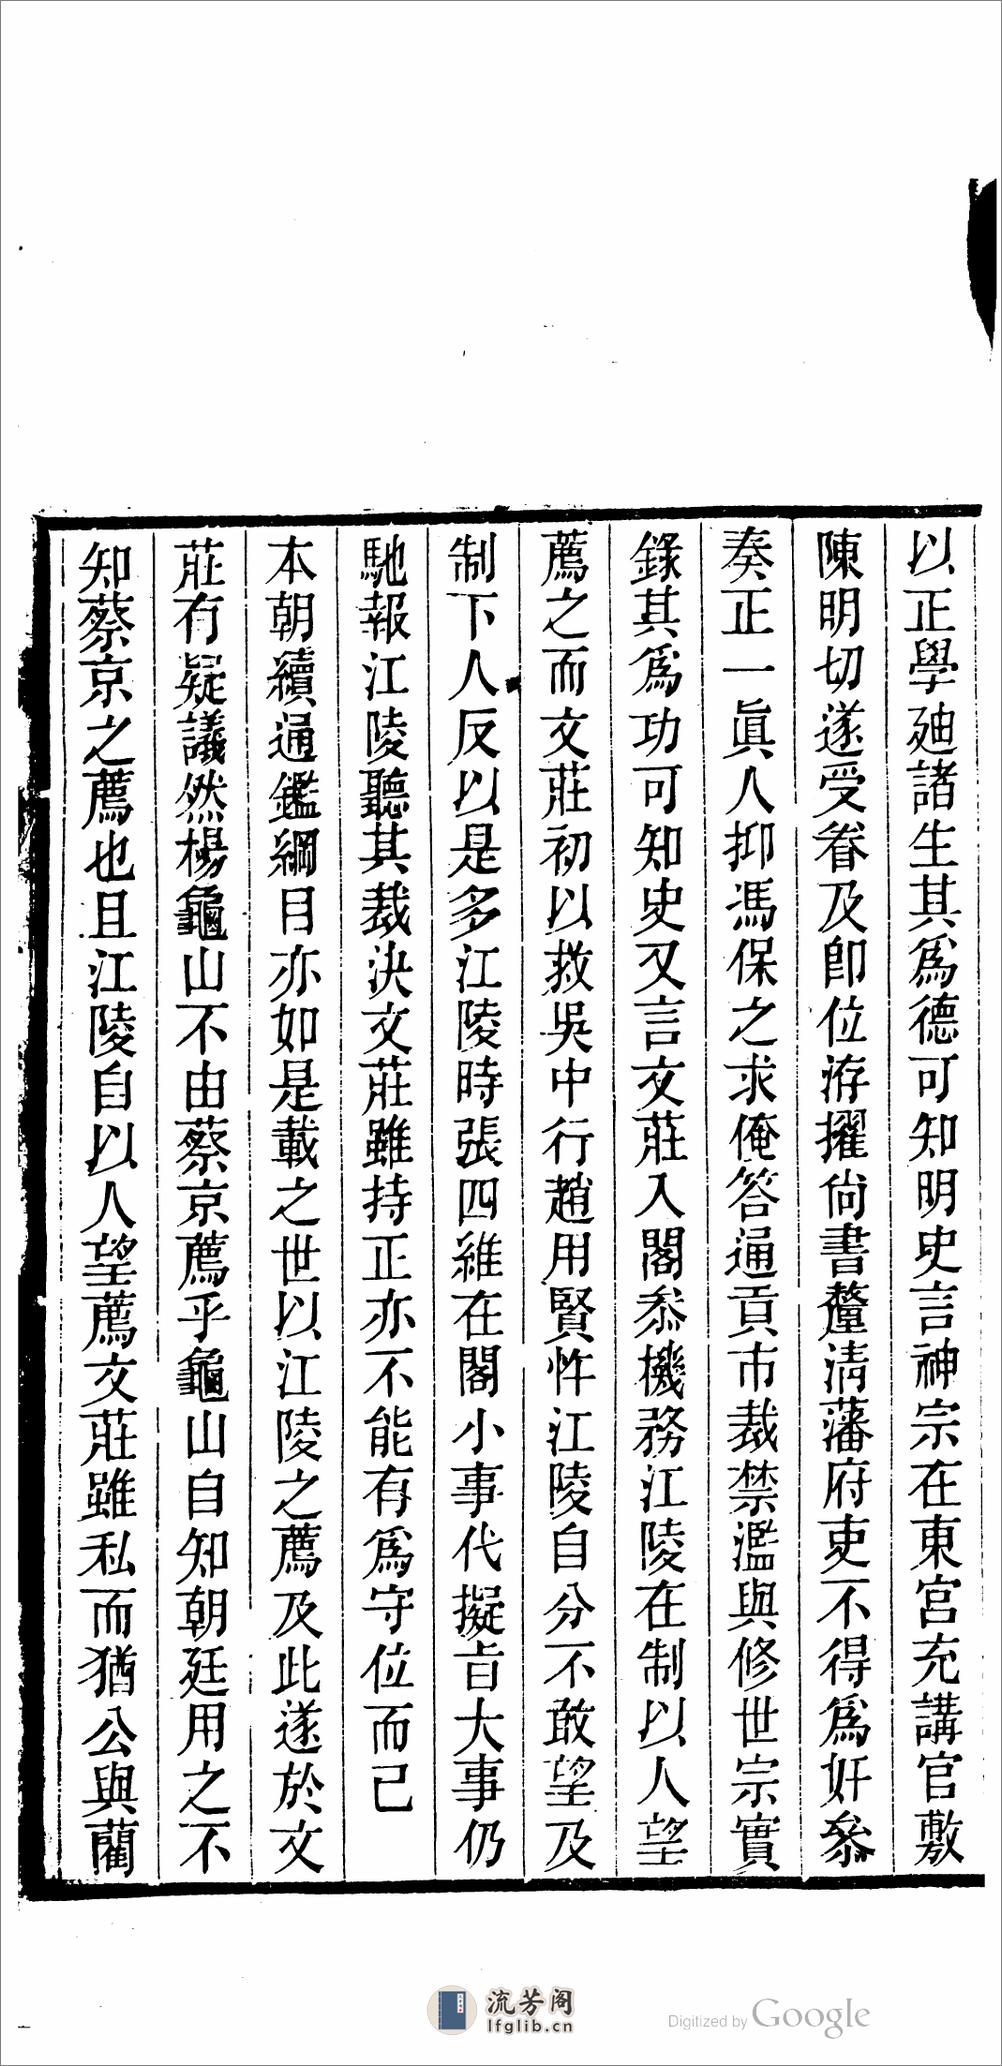 以正學廸諸生其爲德可知明史言神宗在東宮充講官敷
陳明切遂受眷及卽位洊擢尙書釐淸藩府吏不得爲奸叅
奏正一眞人抑馮保之求俺答通貢市裁禁濫與修世宗實
錄其爲功可知史又言文莊入閣叅機務江陵在制以人望
薦之而文莊初以救吳中行趙用賢忤江陵自分不敢望及
制下人反以是多江陵時張四維在閣小事代擬旨大事仍
馳報江陵聽其裁決文莊雖持正亦不能有爲守位而已
本朝續通鑑綱目亦如是載之世以江陵之薦及此遂於文
莊有疑議然楊龜山不由蔡京薦乎龜山自知朝廷用之不
知蔡京之薦也且江陵自以人望薦文莊雖私而猶公與藺
流芳阁
lfglib.cn
Digitized by Google